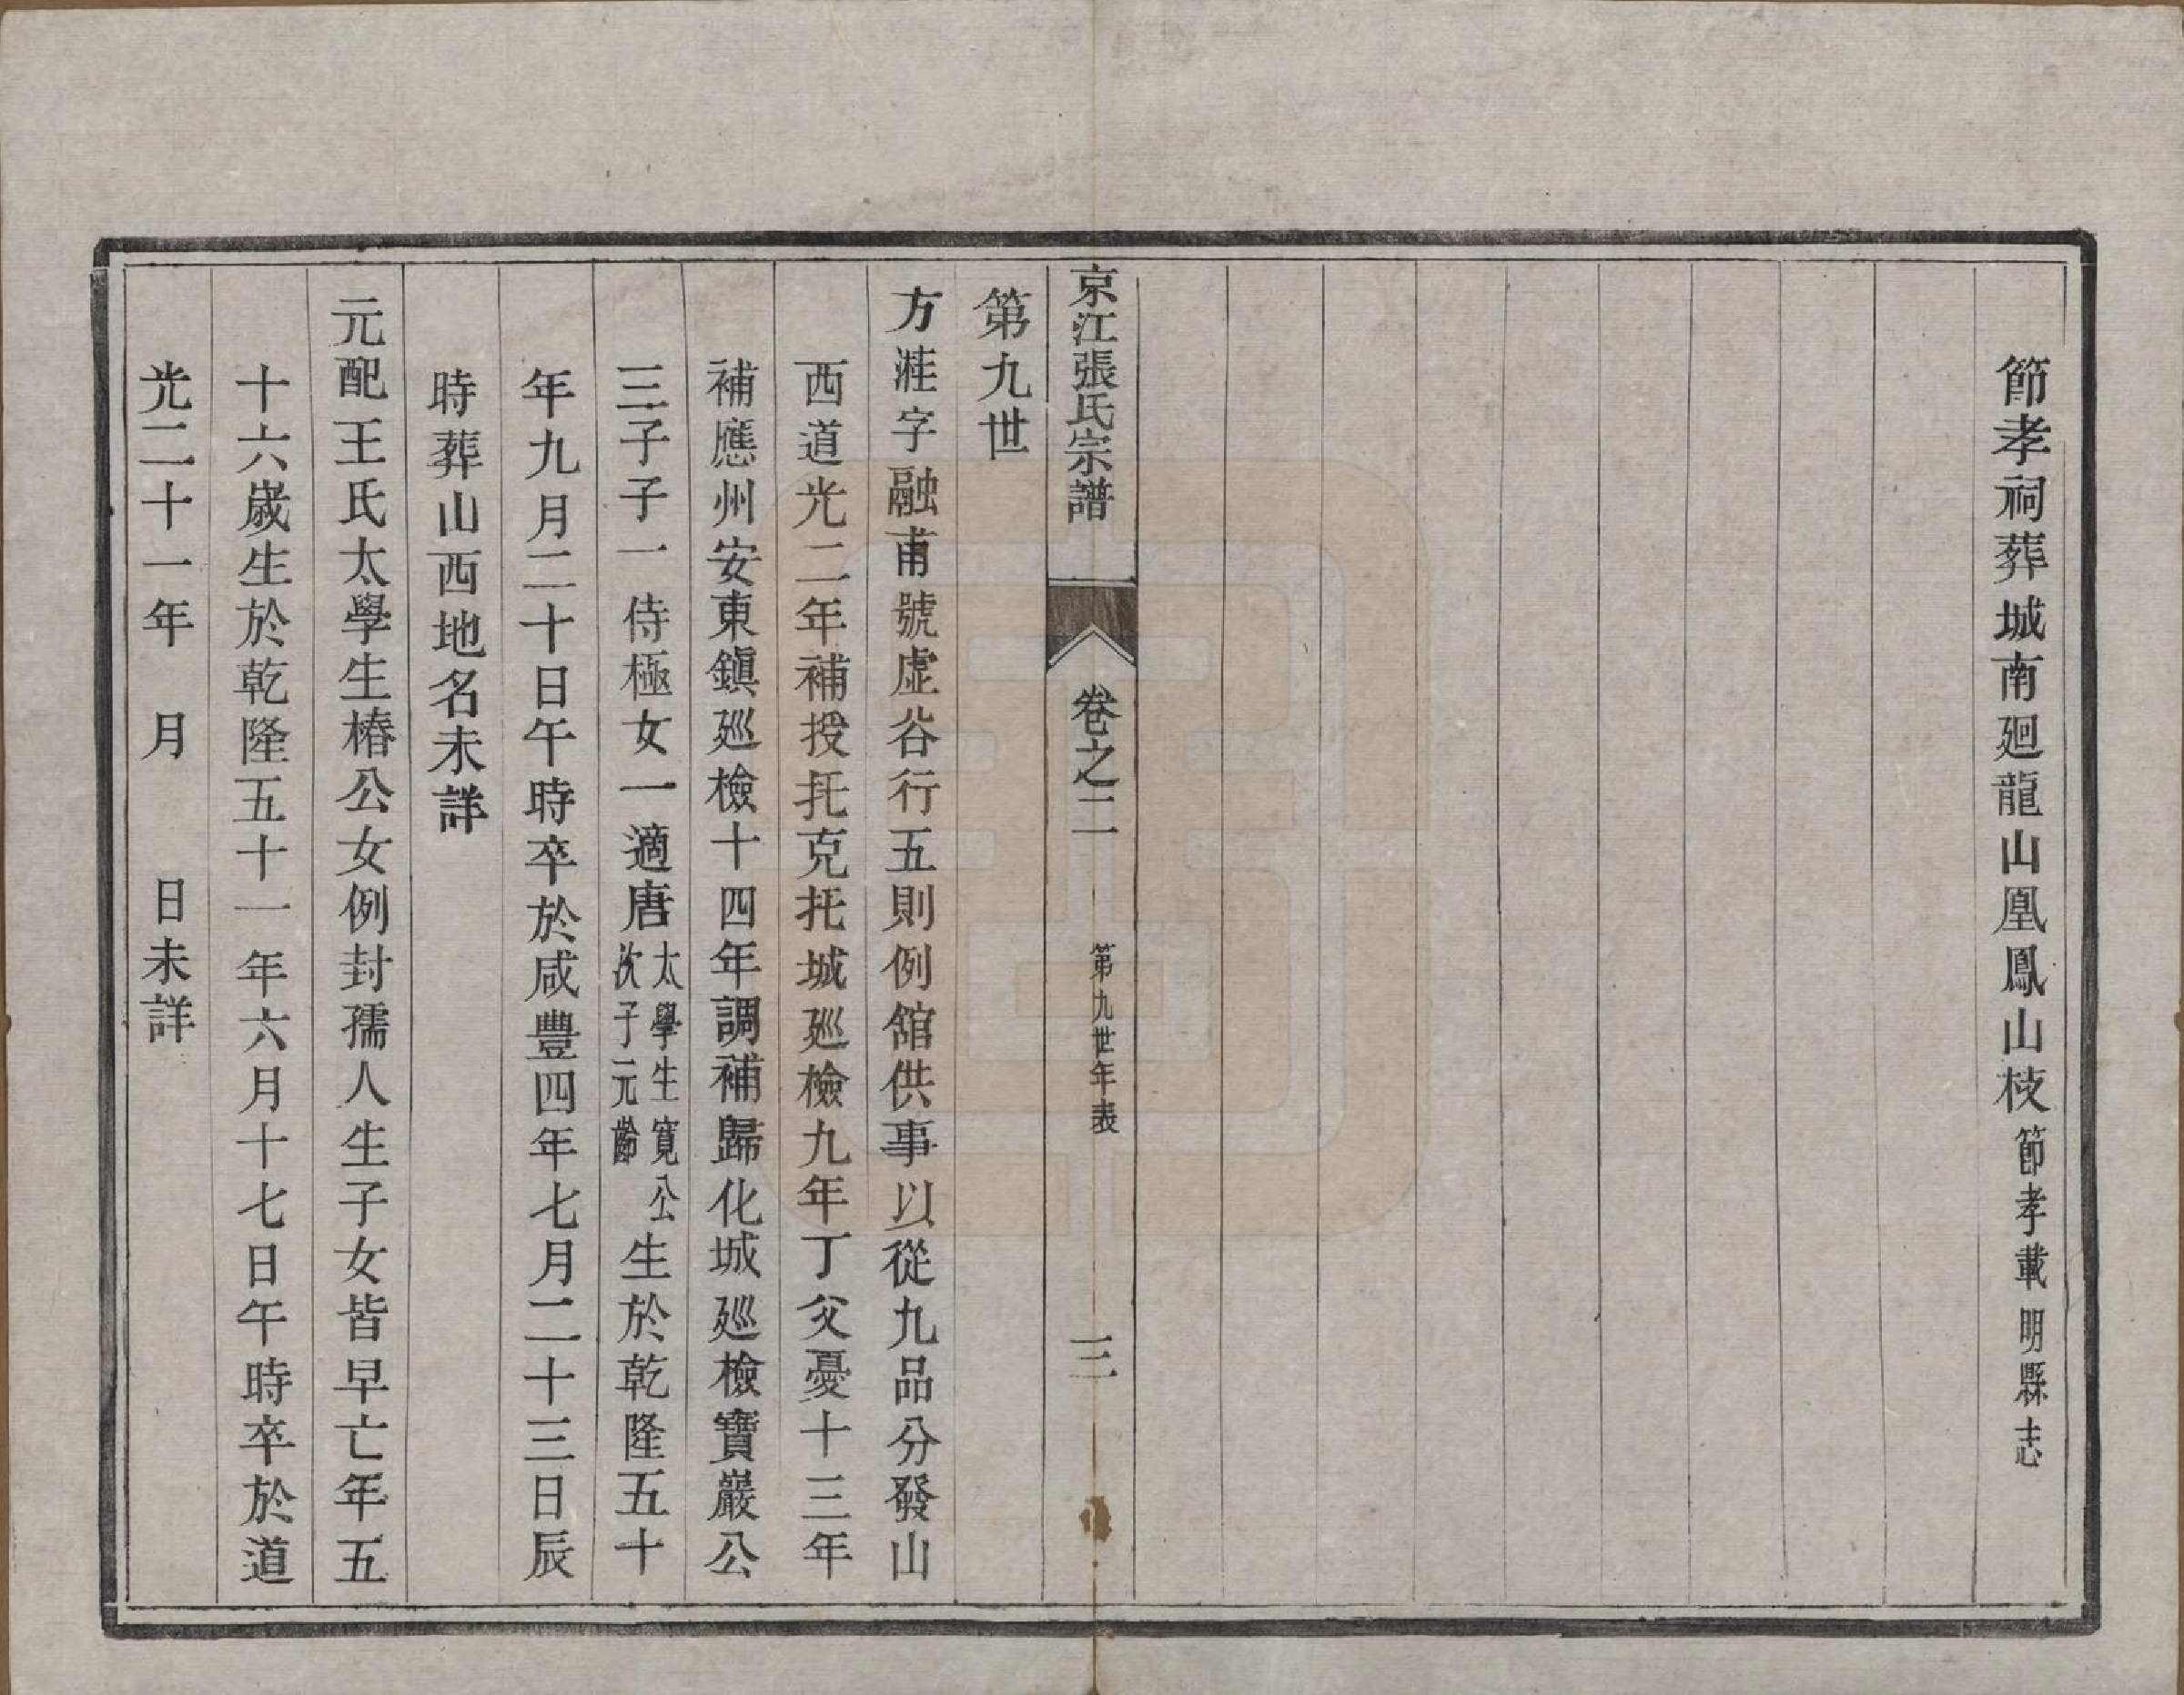 節孝祠葬城南廻龍山凰鳳山枝節孝載明縣志
京江張氏宗譜 卷之二 第九世年表 三
第九世
方溎字融甫號虛谷行五則例館供事以從九品分發山
西道光二年補授托克托城巡檢九年丁父憂十三年
補應州安東鎭巡檢十四年調補歸化城巡檢寶巖公
三子子一侍極女一適唐太學生寬公次子元齡生於乾隆五十
年九月二十日午時卒於咸豐四年七月二十三日辰
時葬山西地名未詳
元配王氏太學生椿公女例封孺人生子女皆早亡年五
十六歲生於乾隆五十一年六月十七日午時卒於道
光二十一年 月 日未詳